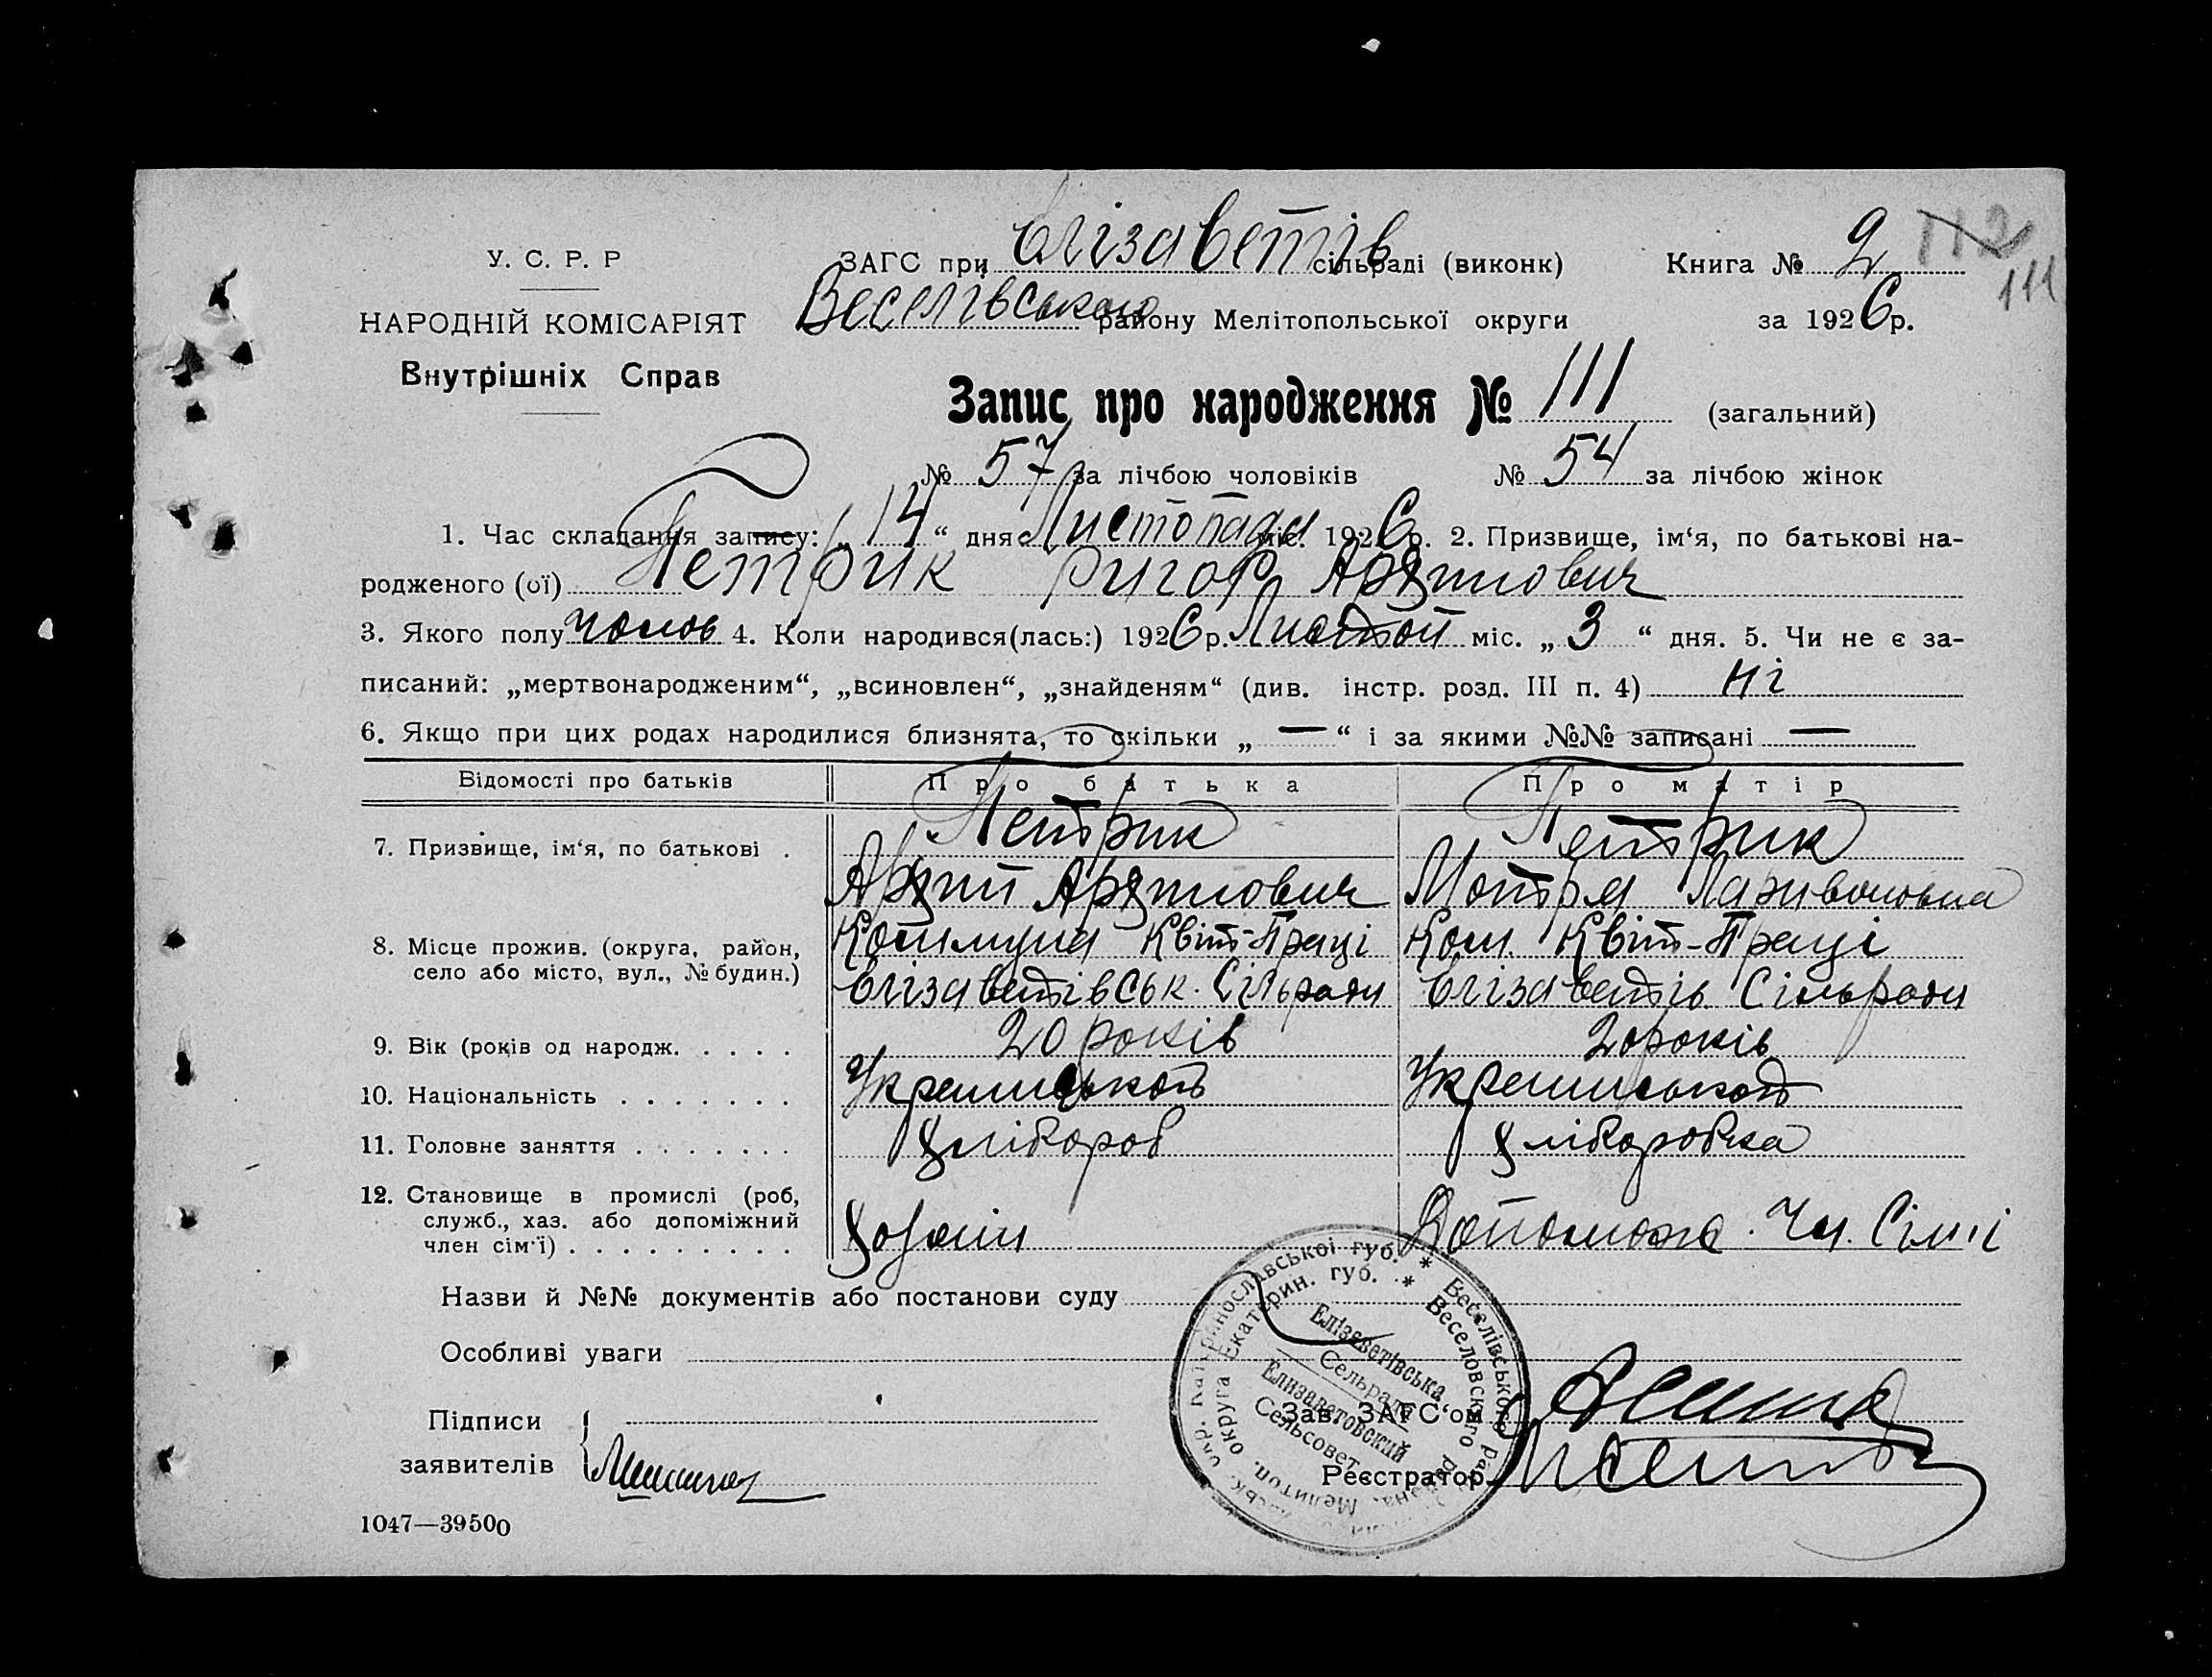 У. С. Р. Р
НАРОДНІЙ КОМІСАРІЯТ
Внутрішніх Справ
ЗАГС при Єлізаветів сільраді (виконк)
Книга № 2
112
111
Веселівського району Мелітопольської округи
за 1926р.
Запис про народження № 111 (загальний)
№ 57 за лічбою чоловіків № 54 за лічбою жінок
1. Час складання запису: „14“ дня Листопада міс. 1926р. 2. Призвище, ім‘я, по батькові на-
родженого (ої) Петрик Григор
3. Якого полу чолов 4. Коли народився(лась:) 1926р. Листоп міс. „3“ дня. 5. Чи не є за-
писаний: „мертвонародженим“, „всиновлен“, „знайденям“ (див. інстр. розд. III п. 4) ні
6. Якщо при цих родах народилися близнята, то скільки „—“ і за якими №№ записані —
Відомості про батьків
Про батька
Про матір
7. Призвище, ім‘я, по батькові .
Петрик
Петрик
Мотря
8. Місце прожив. (округа, район,
село або місто, вул., № будин.)
Комуна Квіт-Праці
Ком. Квіт-Праці
Єлізаветівськ. Сільради
Єлізаветів Сільради
9. Вік (років од народж. . . . .
20 років
20 років
10. Національність . . . . . . .
11. Головне заняття . . . . . . .
Хлібороб
Хліборобка
12. Становище в промислі (роб,
служб., хаз. або допоміжний
член сім‘ї) . . . . . . . . .
Хозяін
Допомож. Чл. Сімі
Назви й №№ документів або постанови суду
Особливі уваги
Підписи
заявителів
Зав. ЗАГС‘ом
Реєстратор
Веселівського
Веселовского
Екатерин. губ.
округа
Мелитоп.
Елізаветівська
Сельрада
Елизаветовский
Сельсовет
1047—39500